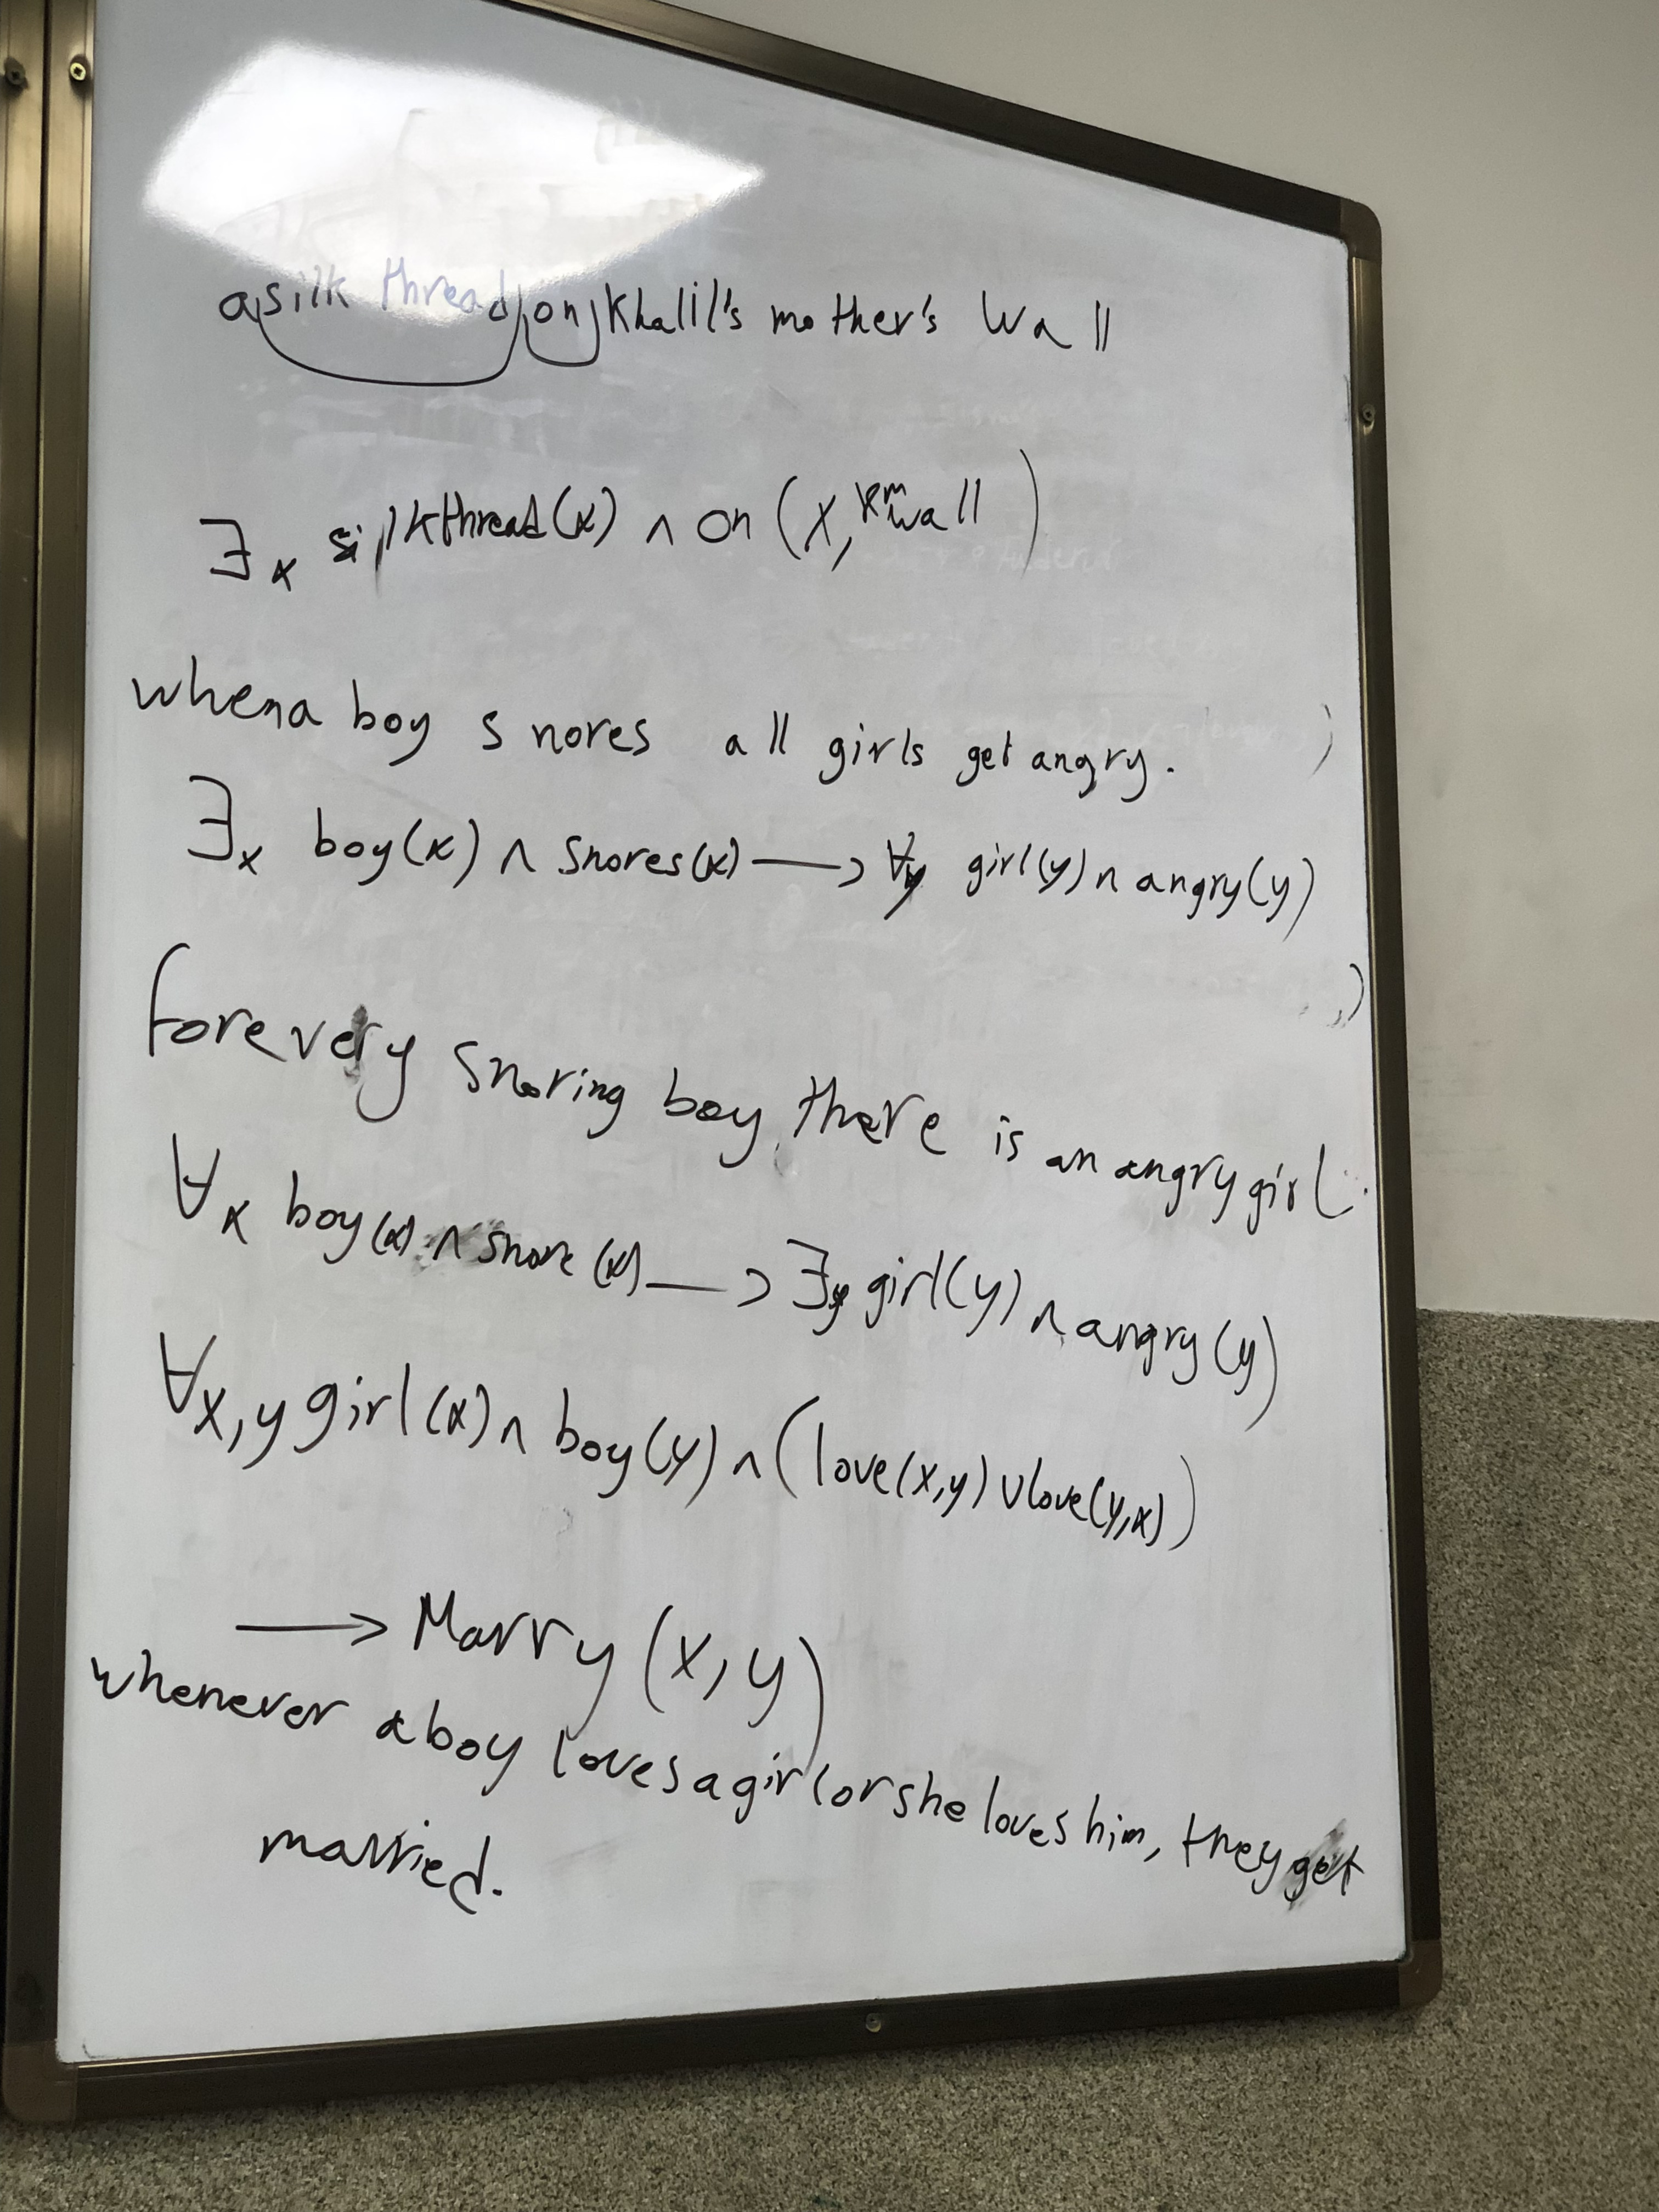 a silk thread on Khalil's mother's wall
∃x silkthread(x) ∧ on (x, kmwall)
when a boy snores all girls get angry.
∃x boy(x) ∧ snores(x) → ∀y girl(y) ∧ angry(y)
for every snoring boy there is an angry girl.
∀x boy(x) ∧ snore(x) → ∃y girl(y) ∧ angry(y)
∀x,y girl(x) ∧ boy(y) ∧ (love(x,y) ∨ love(y,x))
→ Marry (x,y)
whenever a boy loves a girl or she loves him, they get
married.